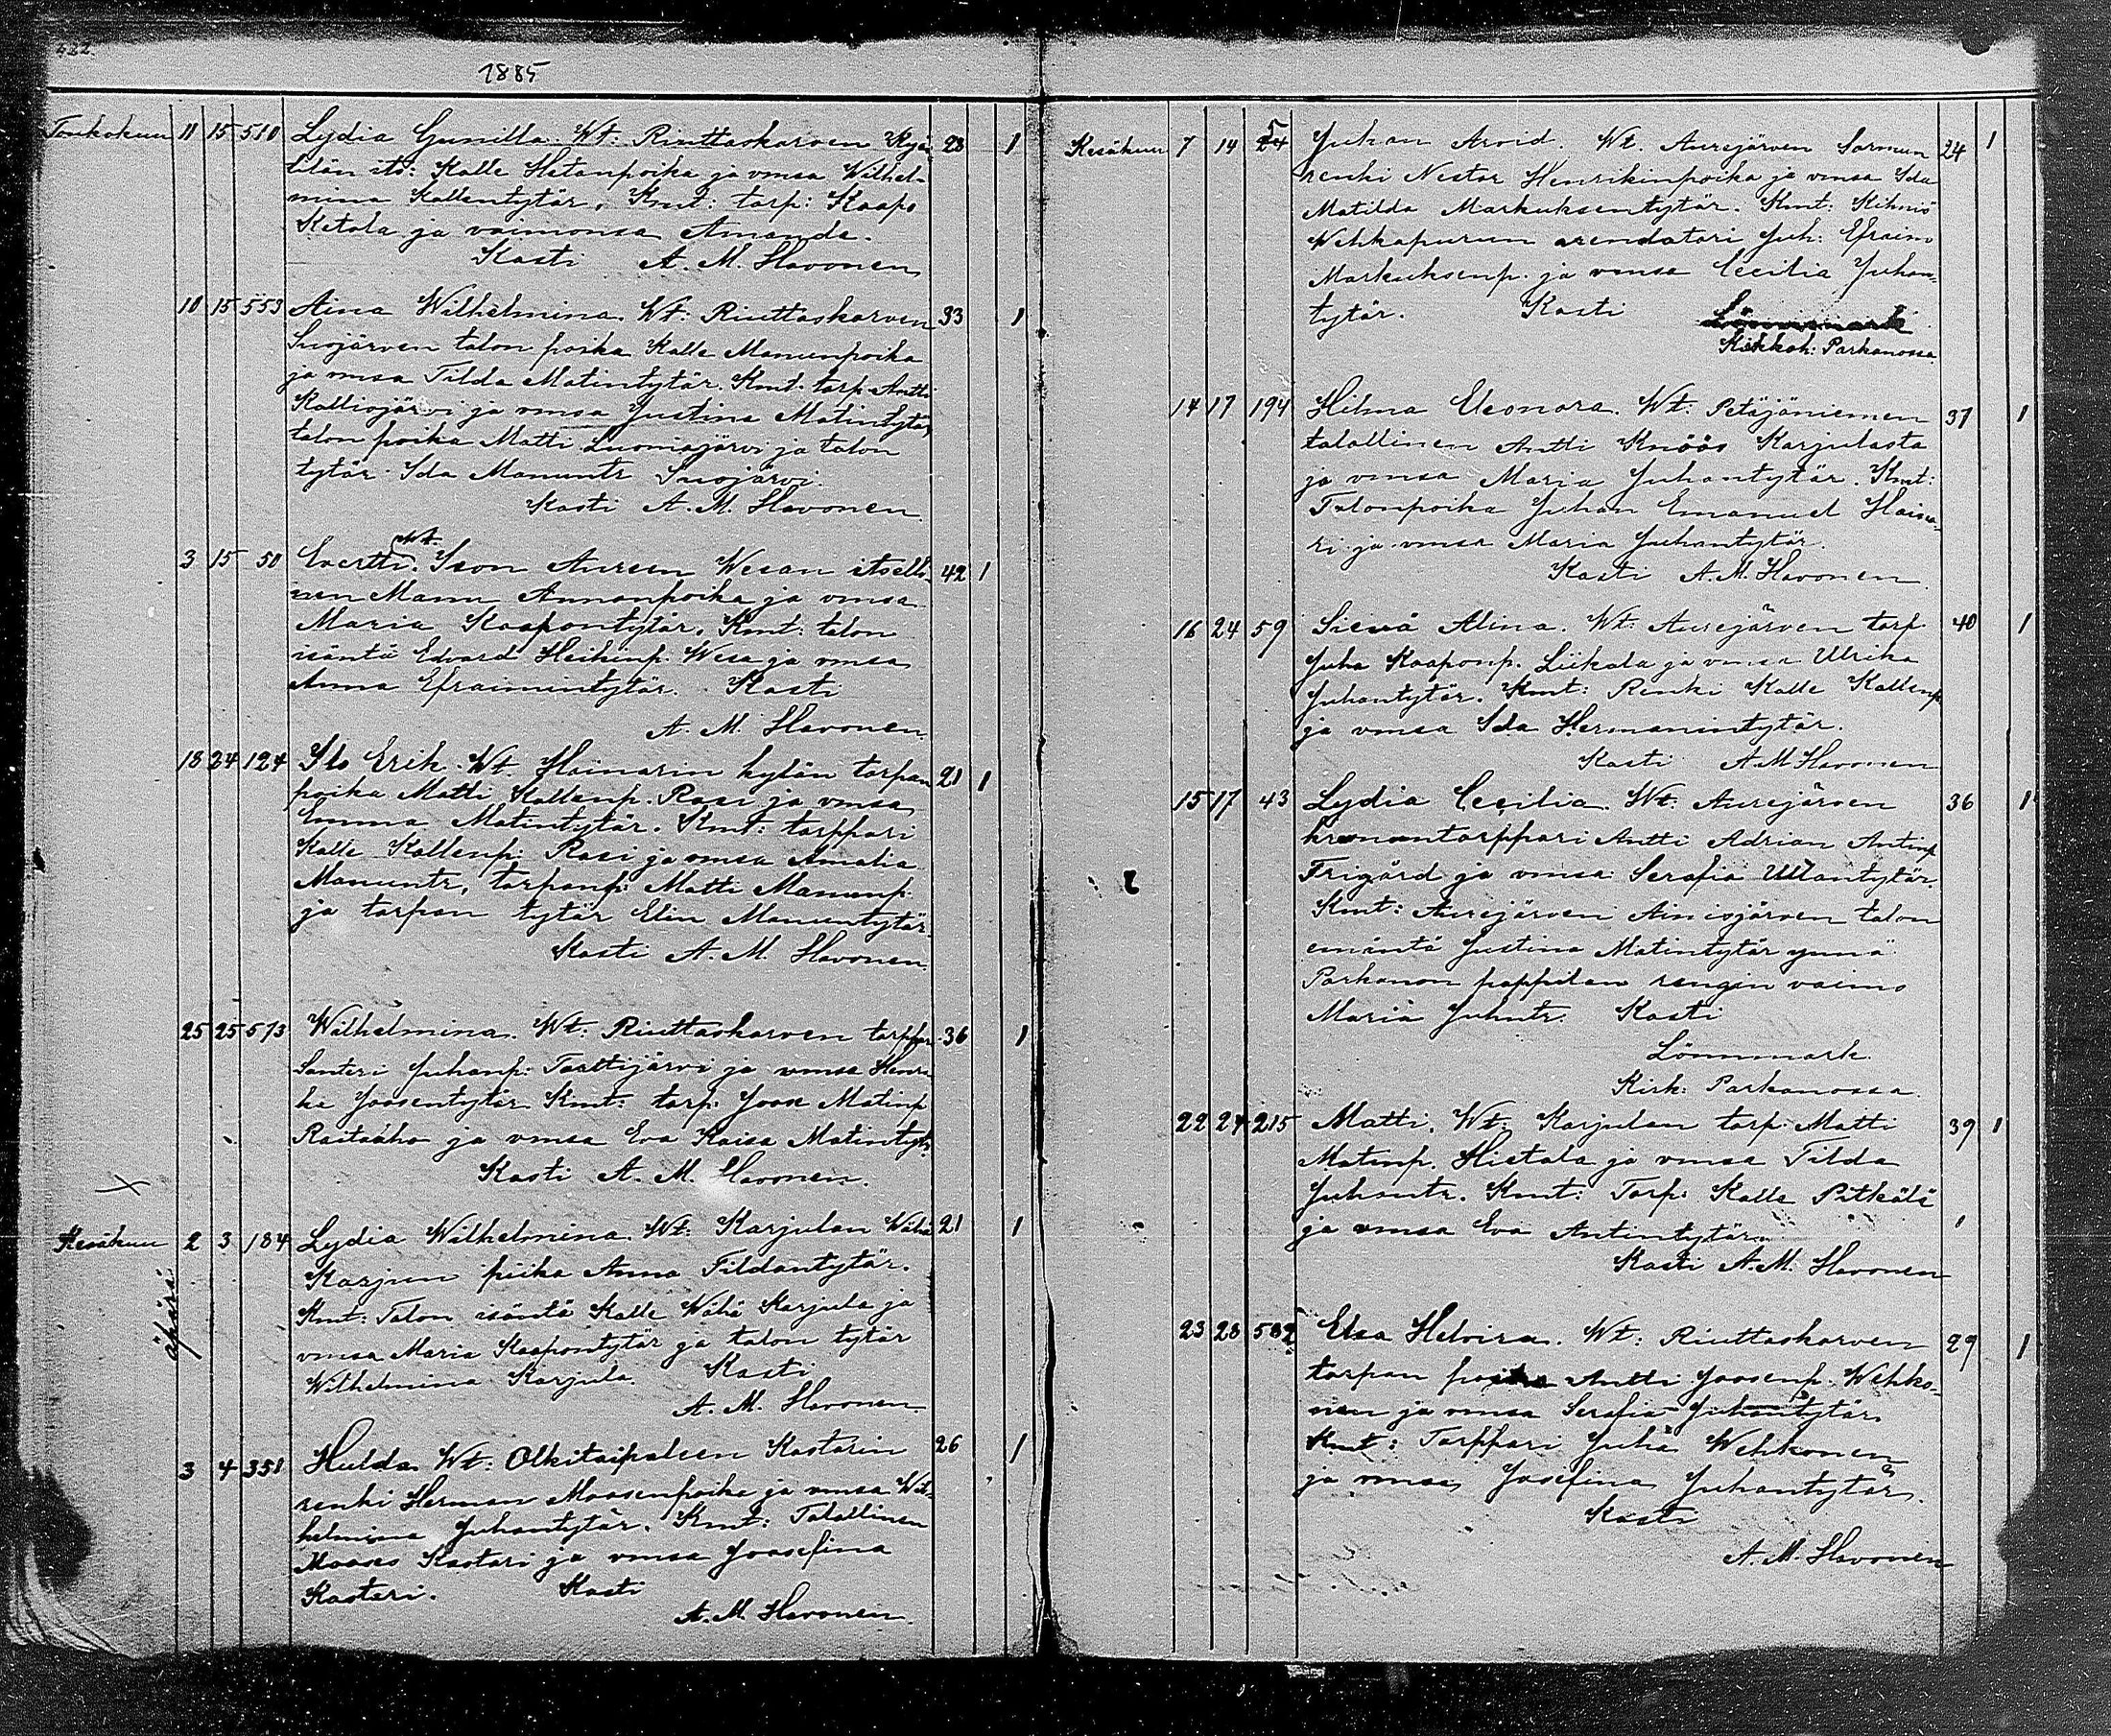 222.
1885
Toukokuun 11 15 510 Lydia Gunilla. Wt: Riuttaskarven 28 1
tilän its: Kalle Hetanpoika ja vmsa Wilhel-
mina Kallentytär. Kmt: torp: Kaapo
Ketola ja vaimonsa Amanda.
Kasti A. M. Havonen
10 15 553 Aina Wilhelmina. Wt: Riuttaskarven 33 1
Suojärven talon poika Kalle Manunpoika
ja vmsa Tilda Matintytär. Kmt. torp. Antti
Kalliojärvi ja vmsa Justina Matintytär,
talon poika Matti Luomajärvi ja talon
tytär Ida Manuntr Suojärvi.
Kasti A. M. Havonen.
3 15 50 Evertti. Wt. Ison Aureen Wesan itselli- 42 1
nen Manu Annanpoika ja vmsa
Maria Kaapontytär. Kmt: talon
isäntä Edvard Heikinp. Wesa ja vmsa
Anna Efraimintytär. Kasti
A. M. Havonen
18 24 124 Ilo Erik. Wt. Hainarin kylän torpan 21 1
poika Matti Kallenp. Rasi ja vmsa
Emma Matintytär. Kmt: torppari
Kalle Kallenp: Rasi ja vmsa Amalia
Manuntr, torpanp: Matti Manunp.
ja torpan tytär Elin Manuntytär.
Kasti A. M. Havonen.
25 25 573 Wilhelmina. Wt: Riuttaskarven torppar. 36 1
Santeri Juhanp: Torttijärvi ja vmsa Henri-
ka Joosentytär Kmt: torp: Joose Matinp
Raitaaho ja vmsa Eva Kaisa Matintyt:
Kasti A. M. Havonen.
Kesäkuun 2 3 184 Lydia Wilhelmina. Wt. Karjulan Wähä 21 1
äpärä
Karjun piika Anna Tildantytär.
Kmt: Talon isäntä Kalle Wähä Karjula ja
vmsa Maria Kaapontytär ja talon tytär
Wilhelmina Karjula. Kasti
A. M. Havonen.
3 4 351 Hulda. Wt: Olkitaipaleen Kastarin 26 1
renki Herman Moosenpoika ja vmsa Wil-
helmina Juhantytär. Kmt: Talollinen
Mooses Kastari ja vmsa Joosefina
Kasteri. Kasti
A. M. Havonen.
Kesäkuun 7 14 Juhan Arvid. Wt. Aurejärven Sormun 24 1
renki Nestor Henrikinpoika ja vmsa Ida
Matilda Markuksentytär. Kmt: Kihniö
Wehkapurun arendatori Juh: Efraim
Markuksenp. ja vmsa Cecilia Juhan-
tytär. Kasti Lönnmark
Kirkkoh: Parkanossa.
14 17 194 Hilma Eleonora. Wt: Petäjäniemen 37 1
talollinen Antti Knöös Karjulasta
ja vmsa Maria Juhantytär. Kmt:
Talonpoika Juhan Emanuel Haina-
ri ja vmsa Maria Juhantytär.
Kasti A. M. Havonen
16 24 59 Sievä Alina. Wt: Aurejärven torp. 40 1
Juha Kaaponp. Liikala ja vmsa Ulrika
Juhantytär. Kmt: Renki Kalle Kallenp
ja vmsa Ida Hermanintytär.
Kasti A. M. Havonen
15 17 43 Lydia Cecilia. Wt: Aurejärven 36 1
kruunntorppari Antti Adrian Antinp
Frigård ja vmsa Serafia Ullantytär.
Kmt: Aurejärven Ainisjärven talon
emäntä Justina Matintytär ynnä
Parkanon pappilan rengin vaimo
Maria Juhntr. Kasti
Lönnmark.
Kirk: Parkanossa.
22 24 215 Matti. Wt. Karjulan torp. Matti 39 1
Matinp. Hietala ja vmsa Tilda
Juhantr. Kmt: Torp: Kalle Pitkälä
ja vmsa Eva Antintytär.
Kasti A. M. Havonen
23 28 582 Elsa Helvira. Wt: Riuttaskarven 29 1
torpan poika Antti Joosenp. Wehko-
nen ja vmsa Serafia Juhantytär
Kmt: Torppari Juha Wehkonen
ja vmsa Josefina Juhantytär.
Kasti
A. M. Havonen